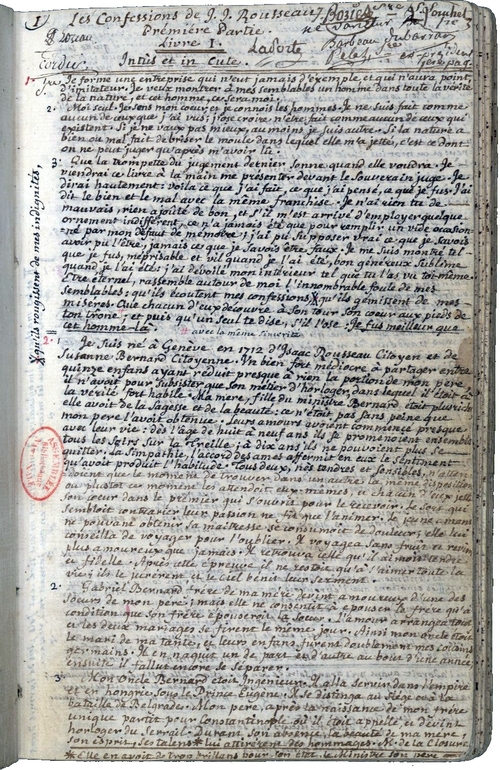 (1) Les Confessions de J. J. Rousseau
Première Partie.
Livre I.
Intùs et in Cute.
1. Je forme une entreprise qui n'eut jamais d'exemple et qui n'aura point
d'imitateur. Je veux montrer à mes semblables un homme dans toute la vérité
de la nature, et cet homme, ce sera moi.
2. Moi seul. Je sens mon cœur et je connois les hommes. Je ne suis fait comme
aucun de ceux que j'ai vus; j'ose croire n'être fait comme aucun de ceux qui
existent. Si je ne vaux pas mieux, au moins je suis autre. Si la nature a
bien ou mal fait de briser le moule dans lequel elle m'a jetté, c'est ce dont
on ne peut juger qu'après m'avoir lu.
3. Que la trompette du jugement dernier sonne quand elle voudra. Je
viendrai ce livre à la main me présenter devant le Souverain juge. Je
dirai hautement: voila ce que j'ai fait, ce que j'ai pensé, ce que je fus. J'ai
dit le bien et le mal avec la même franchise. Je n'ai rien tu de
mauvais, rien ajoûté de bon, et s'il m'est arrivé d'employer quelque
ornement indifférent, ce n'a jamais été que pour remplir un vide occasion-
-né par mon défaut de mémoire; j'ai pu supposer vrai ce que je savois
avoir pu l'être, jamais ce que je savois être faux. Je me suis montré tel
que je fus, méprisable et vil quand je l'ai été, bon, généreux, sublime,
quand je l'ai été: j'ai dévoilé mon intérieur tel que tu l'as vu toi-même.
Etre éternel, rassemble autour de moi l'innombrable foule de mes
semblables; qu'ils écoutent mes confessions, X qu'ils gémissent de mes
miséres. Que chacun d'eux découvre à son tour son cœur aux pieds de
ton trône; et puis qu'un seul te dise, s'il l'ose: Je fus meilleur que
cet homme-la.
avec la même sincérité
X qu'ils rougissent de mes indignités,
2. 1. Je suis né à Genève en 1712 d'Isaac Rousseau Citoyen et de
Susanne Bernard Citoyenne. Un bien fort médiocre à partager entre
quinze enfans ayant réduit presque à rien la portion de mon pere,
il n'avoit pour subsister que son métier d'horloger, dans lequel il étoit à
la vérité fort habile. Ma mère, fille du ministre Bernard étoit plus riche;
elle avoit de la sagesse et de la beauté: ce n'étoit pas sans peine que
mon pere l'avoit obtenue. Leurs amours avoient commencé presque
avec leur vie: dès l'âge de huit à neuf ans ils se promenoient ensemble
tous les soirs sur la Treille; à dix ans ils ne pouvoient plus se
quitter. La simpathie, l'accord des ames affermit en eux le sentiment
qu'avoit produit l'habitude. Tous deux, nés tendres et sensibles, n'atten-
doient que le moment de trouver dans un autre la même disposition,
ou plustot ce moment les attendoit eux-mêmes, et chacun d'eux jetta
son cœur dans le prémier qui s'ouvrit pour le recevoir. Le sort qui
sembloit contrarier leur passion ne fit que l'animer. Le jeune amant
ne pouvant obtenir sa maitresse se consumoit de douleur; elle lui
conseilla de voyager pour l'oublier. Il voyagea sans fruit et revint
plus amoureux que jamais. Il retrouva celle qu'il aimoit tendre
et fidelle. Après cette épreuve il ne restoit qu'à s'aimer toute la
vie; ils le jurérent et le ciel benit leur serment.
2. Gabriel Bernard frére de ma mére devint amoureux d'une des
sœurs de mon pere; mais elle ne consentit à épouser le frére qu'à
condition que son frére épouseroit la sœur. L'amour arrangea tout
et les deux mariages se firent le même jour. Ainsi mon oncle étoit
le mari de ma tante, et leur enfans furent doublement mes cousins
germains. Il en naquit un de part et d'autre au bout d'une année,
ensuite il fallut encore se séparer.
3. Mon Oncle Bernard étoit Ingénieur: il alla servir dans l'empire
et en hongrie sous le Prince Eugène. Il se distingua au siége et à la
bataille de Belgrade. Mon pere, après la naissance de mon frére
unique partit pour Constantinople où il étoit appellé et devint
horloger du Serrail. Durant son absence, la beauté de ma mére,
son esprit, ses talens * lui attirérent des hommages. M. de la Closure
* Elle en avoit de trop brillans pour son état, le Ministre son pere